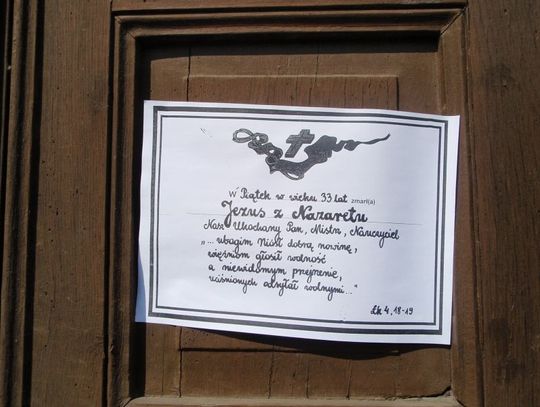 W Piątek w wieku 33 lat zmarł(a)
Jezus z Nazaretu
Nasz Ukochany Pan, Mistrz, Nauczyciel
"... ubogim niósł dobrą nowinę,
więźniom głosił wolność
a niewidomym przejrzenie,
uciśnionych odsyłał wolnymi..."
Łk 4, 18-19